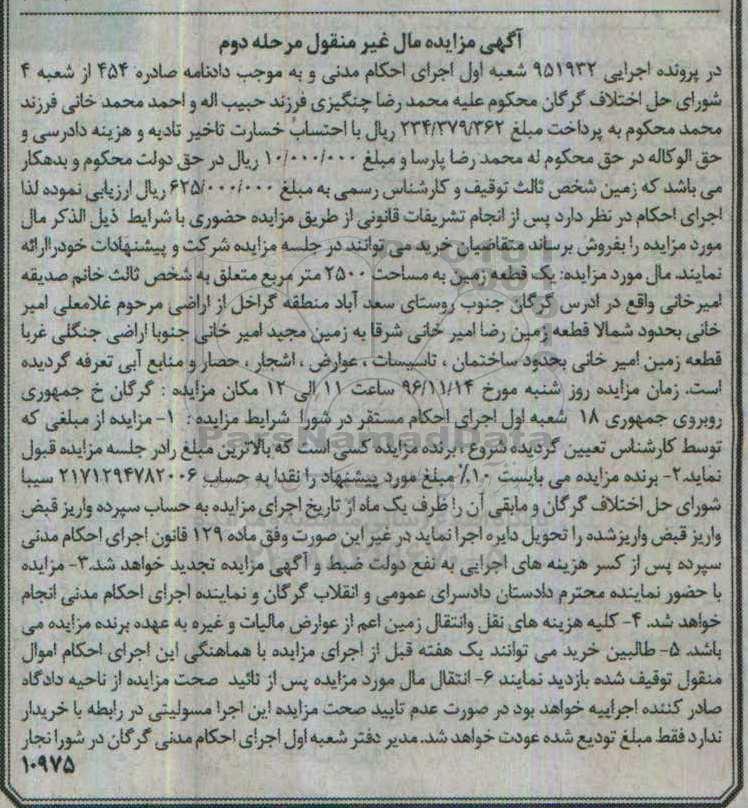 آگهی مزایده مال غیر منقول مرحله دوم
در پرونده اجرایی ۹۵۱۹۳۲ شعبه اول اجرای احکام مدنی و به موجب دادنامه صادره ۴۵۴ از شعبه ۴
شورای حل اختلاف گرگان محکوم علیه محمد رضا چنگیزی فرزند حبیب اله و احمد محمد خانی فرزند
محمد محکوم به پرداخت مبلغ ۲۳۴/۳۷۹/۳۶۲ ریال با احتساب خسارت تاخیر تادیه و هزینه دادرسی و
حق الوکاله در حق محکوم له محمد رضا پارسا و مبلغ ۱۰/۰۰۰/۰۰۰ ریال در حق دولت محکوم و بدهکار
می باشد که زمین شخص ثالث توقیف و کارشناس رسمی به مبلغ ۶۲۵/۰۰۰/۰۰۰ ریال ارزیابی نموده لذا
اجرای احکام در نظر دارد پس از انجام تشریفات قانونی از طریق مزایده حضوری با شرایط ذیل الذکر مال
مورد مزایده را بفروش برساند متقاضیان خرید می توانند در جلسه مزایده شرکت و پیشنهادات خودراارائه
نمایند. مال مورد مزایده: یک قطعه زمین به مساحت ۲۵۰۰ متر مربع متعلق به شخص ثالث خانم صدیقه
امیرخانی واقع در ادرس گرگان جنوب روستای سعد آباد منطقه گراخل از اراضی مرحوم غلامعلی امیر
خانی بحدود شمالا قطعه زمین رضا امیر خانی شرقا به زمین مجید امیر خانی جنوبا اراضی جنگلی غربا
قطعه زمین امیر خانی بحدود ساختمان ، تاسیسات ، عوارض ، اشجار ، حصار و منابع آبی تعرفه گردیده
است. زمان مزایده روز شنبه مورخ ۹۶/۱۱/۱۴ ساعت ۱۱ الی ۱۲ مکان مزایده : گرگان خ جمهوری
روبروی جمهوری ۱۸ شعبه اول اجرای احکام مستقر در شورا شرایط مزایده : ۱- مزایده از مبلغی که
توسط کارشناس تعیین گردیده شروع ، برنده مزایده کسی است که بالاترین مبلغ رادر جلسه مزایده قبول
نماید.۲- برنده مزایده می بایست ۱۰٪ مبلغ مورد پیشنهاد را نقدا به حساب ۲۱۷۱۲۹۴۷۸۲۰۰۶ سیبا
شورای حل اختلاف گرگان و مابقی آن را ظرف یک ماه از تاریخ اجرای مزایده به حساب سپرده واریز قبض
واریز قبض واریزشده را تحویل دایره اجرا نماید در غیر این صورت وفق ماده ۱۲۹ قانون اجرای احکام مدنی
سپرده پس از کسر هزینه های اجرایی به نفع دولت ضبط و آگهی مزایده تجدید خواهد شد.۳- مزایده
با حضور نماینده محترم دادستان دادسرای عمومی و انقلاب گرگان و نماینده اجرای احکام مدنی انجام
خواهد شد. ۴- کلیه هزینه های نقل وانتقال زمین اعم از عوارض مالیات و غیره به عهده برنده مزایده می
باشد. ۵- طالبین خرید می توانند یک هفته قبل از اجرای مزایده با هماهنگی این اجرای احکام اموال
منقول توقیف شده بازدید نمایند ۶- انتقال مال مورد مزایده پس از تائید صحت مزایده از ناحیه دادگاه
صادر کننده اجراییه خواهد بود در صورت عدم تایید صحت مزایده این اجرا مسولیتی در رابطه با خریدار
ندارد فقط مبلغ تودیع شده عودت خواهد شد. مدیر دفتر شعبه اول اجرای احکام مدنی گرگان در شورا نجار
۱۰۹۷۵
ParsNamadData